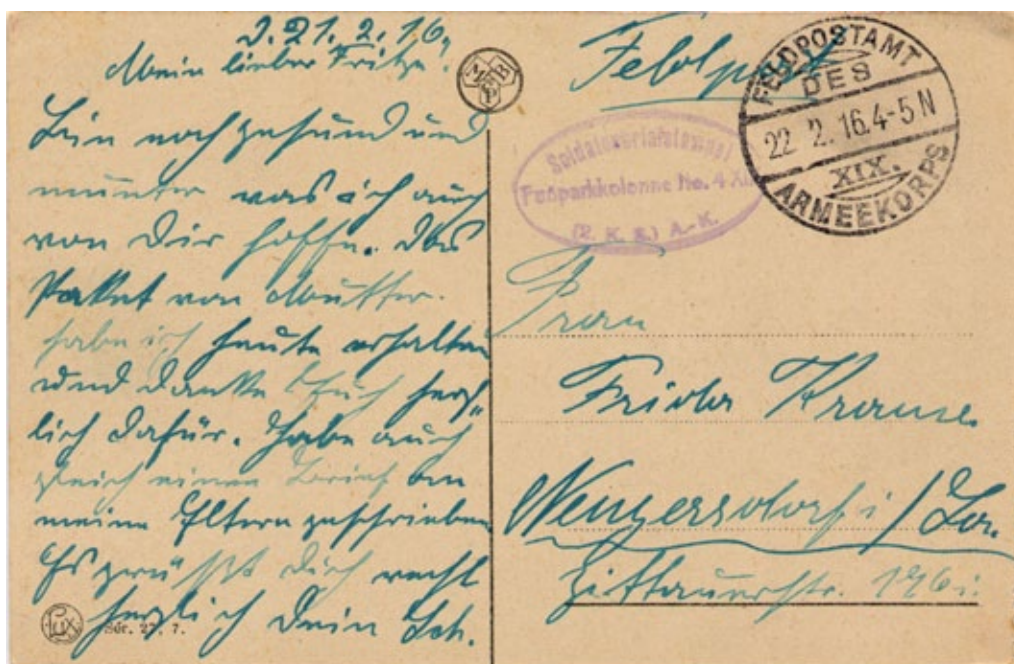 D. 21. 2. 16.
Mein lieber Fritze!
Bin noch gesund und
munter was ich auch
von Dir hoffe. Das
Paket von Mutter
habe ich heute erhalten
und danke Euch herz„
lich dafür. Habe auch
gleich einen Brief an
meine Eltern geschrieben
Es grüßt Dich recht
herzlich Dein
Lux
Sér. 27. 7.
Feldpost
FELDPOSTAMT
DES
22 2. 16. 4-5 N
XIX.
ARMEEKORPS
No. 4
(2. K. S.) A.-K.
Frau
Frida Krause
/Sa.
Zittauerstr.